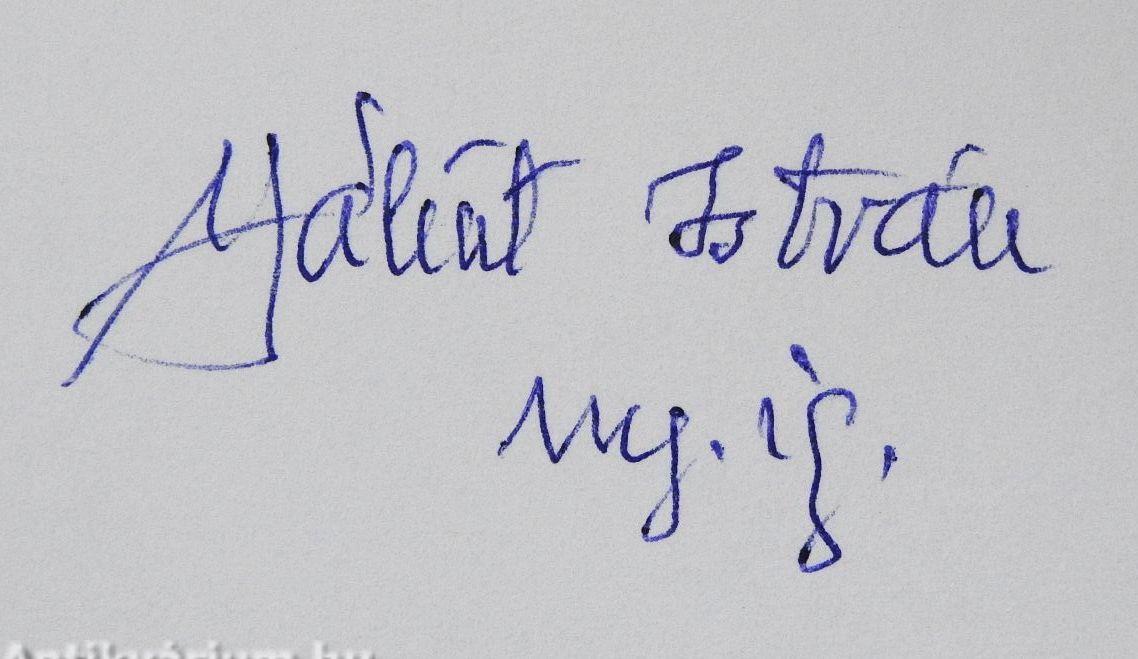 István
ny. ig.
Antikvárium.hu